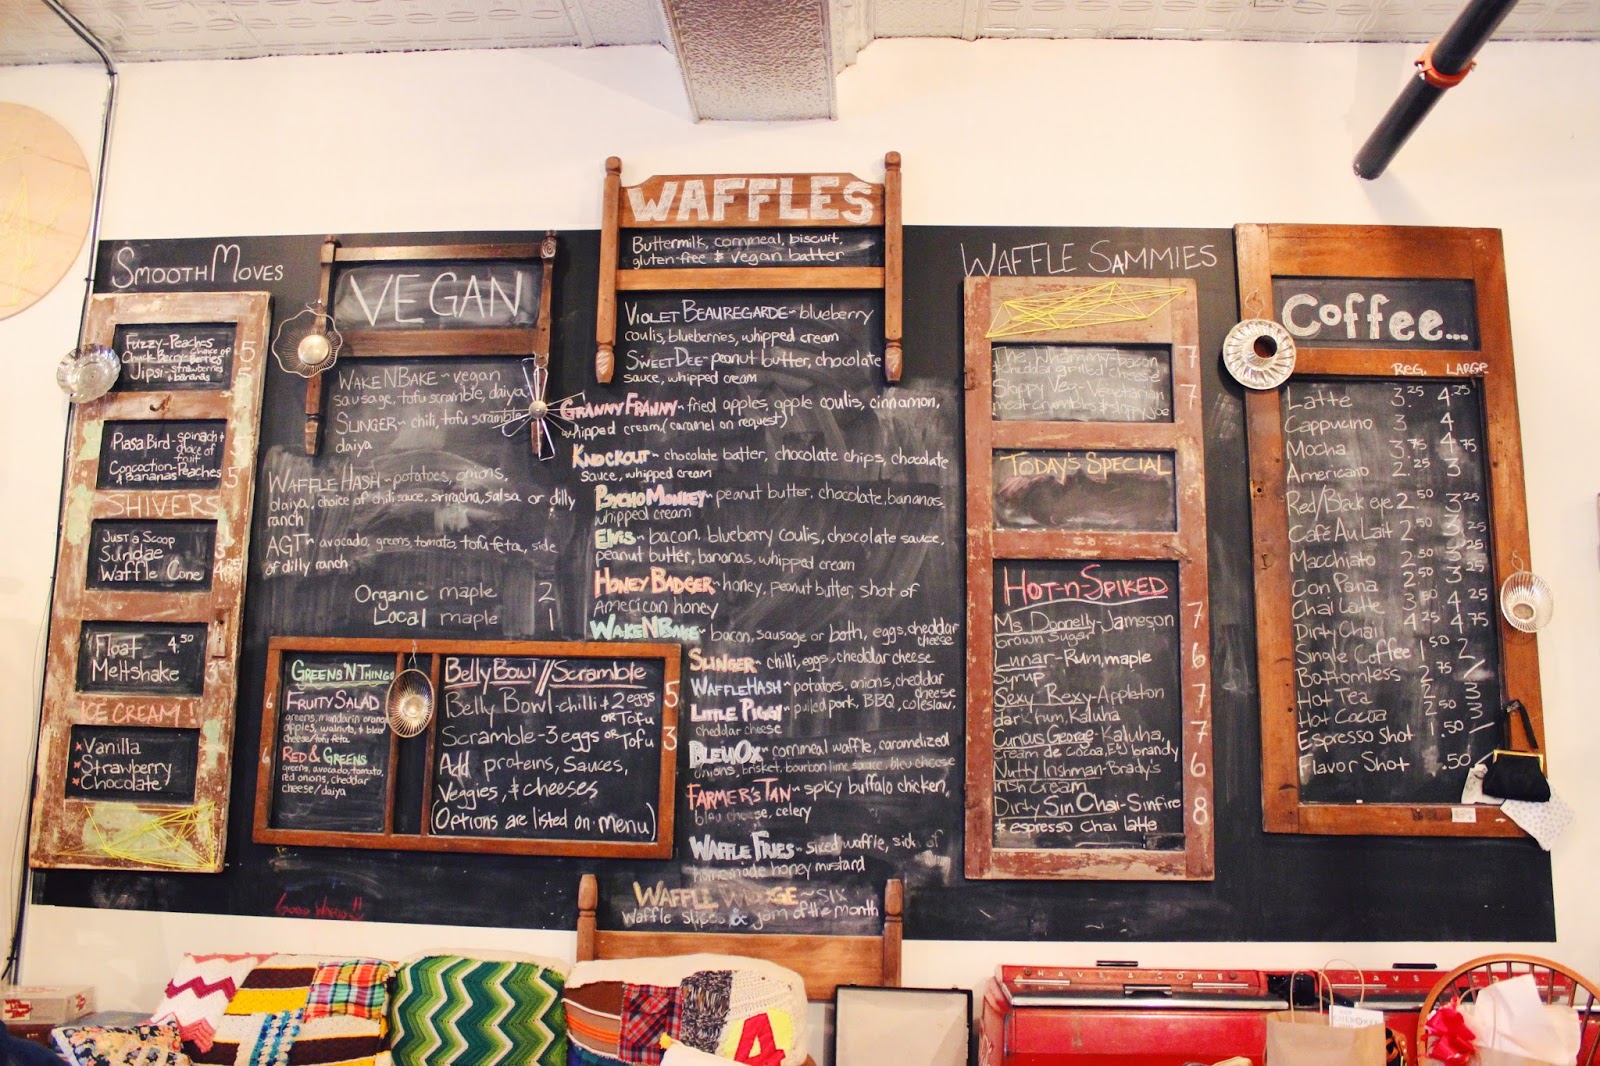 SMOOTH MOVES
Fuzzy-Peaches
Chuck Berry-Berries
choice of
Jipsi-strawberries
& bananas
5
5
5
Piasa Bird-spinach +
choice of
fruit
Concoction-Peaches
& Bananas
5
5
SHIVERS
Just a Scoop
Sundae
Waffle Cone
Float 4.50
Meltshake 3.50
ICE CREAM!
* Vanilla
* Strawberry
* Chocolate
VEGAN
WAKE N BAKE ~ vegan
sausage, tofu scramble, daiya
SLINGER ~ chili, tofu scramble
daiya
WAFFLE HASH ~ potatoes, onions,
daiya, choice of chili sauce, sriracha, salsa or dilly
ranch
AGT ~ avocado, greens, tomato, tofu feta, side
of dilly ranch
Organic maple 2
Local maple 1
GREENS 'N THINGS
FRUITY SALAD
greens, mandarin orange
apples, walnuts, & bleu
cheese/tofu feta
6
RED & GREENS
greens, avocado, tomato,
red onions, cheddar
cheese/daiya
6
Belly Bowl//Scramble
Belly Bowl-chilli + 2 eggs
or Tofu
5
Scramble-3 eggs or Tofu
3
Add proteins, Sauces,
Veggies, & cheeses
(Options are listed on menu)
WAFFLES
Buttermilk, cornmeal, biscuit,
gluten-free & vegan batter
VIOLET BEAUREGARDE ~ blueberry
coulis, blueberries, whipped cream
SWEET DEE ~ peanut butter, chocolate
sauce, whipped cream
GRANNY FRANNY ~ fried apples, apple coulis, cinnamon,
whipped cream (caramel on request)
KNOCKOUT ~ chocolate batter, chocolate chips, chocolate
sauce, whipped cream
PSYCHO MONKEY ~ peanut butter, chocolate, bananas,
whipped cream
ELVIS ~ bacon, blueberry coulis, chocolate sauce,
peanut butter, bananas, whipped cream
HONEY BADGER ~ honey, peanut butter, shot of
American honey
WAKE N BAKE ~ bacon, sausage or both, eggs, cheddar
cheese
SLINGER ~ chilli, eggs, cheddar cheese
WAFFLE HASH ~ potatoes, onions, cheddar
cheese
LITTLE PIGGY ~ pulled pork, BBQ, coleslaw,
cheddar cheese
BLEU OX ~ cornmeal waffle, caramelized
onions, brisket, bourbon lime sauce, bleu cheese
FARMER'S TAN ~ spicy buffalo chicken,
bleu cheese, celery
WAFFLE FRIES ~ sliced waffle, side of
homemade honey mustard
WAFFLE WEDGE ~ SIX
Waffle slices & jam of the month
WAFFLE SAMMIES
The Whammy-bacon
& cheddar grilled cheese
7
Sloppy Veg-Vegetarian
meat crumbles & sloppy joe
7
TODAY'S SPECIAL
HOT-N-SPIKED
Ms. Donnelly-Jameson
brown sugar
7
Lunar-Rum, maple
syrup
6
Sexy Rexy-Appleton
dark rum, Kaluha
7
Curious George-Kaluha,
cream de cocoa, E&J brandy
7
Nutty Irishman-Brady's
Irish cream
6
Dirty Sin Chai-Sinfire
& espresso chai latte
8
Coffee...
REG. LARGE
Latte 3.25 4.25
Cappucino 3 4
Mocha 3.75 4.75
Americano 2.25 3
Red/Black eye 2.50 3.25
Café Au Lait 2.50 3.25
Macchiato 2.50 3.25
Con Pana 2.50 3.25
Chai Latte 3.50 4.25
Dirty Chai 4.25 4.75
Single Coffee 1.50 2
Bottomless 2.75 /
Hot Tea 2 3
Hot Cocoa 2.50 3
Espresso Shot 1.50 /
Flavor Shot .50
HAVE A COKE
HAVE
4